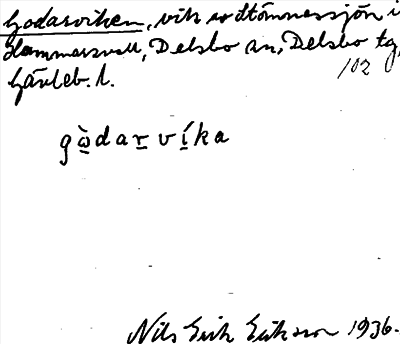 Godarviken, vik av Stömnessjön i
Hammarsvall, Delsbo sn, Delsbo tg,
Gävleb. l. 102
gò̱daṟ ví̱ka
Nils Erik Eriksson 1936.